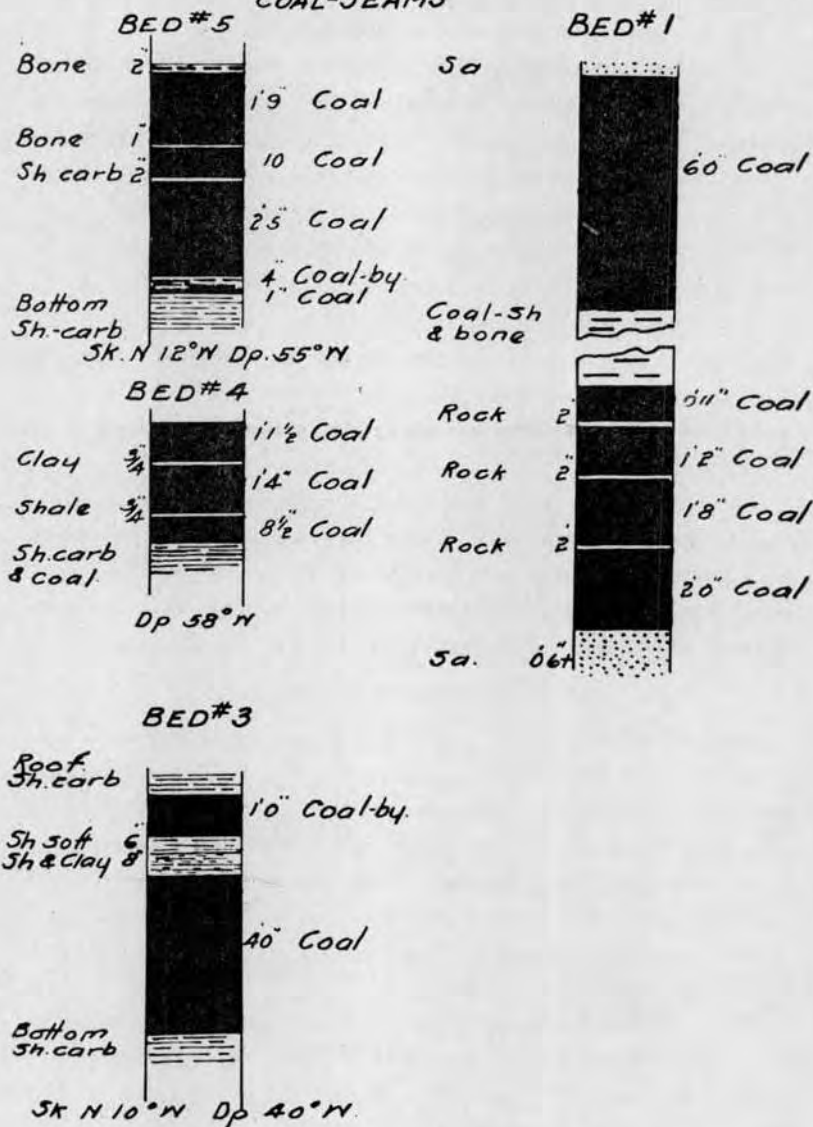 COAL-SEAMS
BED #5
Bone 2"
1'9" Coal
Bone 1"
10 Coal
Sh carb 2"
2'5" Coal
4" Coal-by
1" Coal
Bottom
Sh.-carb
Sk. N 12° W Dp. 55° W.
BED #4
1'1 1/2 Coal
Clay 3/4"
1'4" Coal
Shale 3/4"
8 1/2" Coal
Sh. carb
& coal.
Dp 58° W.
BED #3
Roof.
Sh. carb
1'0" Coal-by.
Sh soft 6"
Sh & Clay 8"
4'0" Coal
Bottom
Sh. carb
Sk N 10° W Dp 40° W.
BED #1
Sa
6'0" Coal
Coal-Sh
& bone
0'11" Coal
Rock 2"
1'2" Coal
Rock 2"
1'8" Coal
Rock 2"
2'0" Coal
Sa. 0'6"+